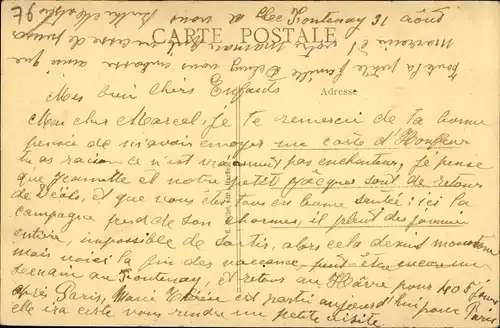 Le Fontenay 31 août
CARTE POSTALE
Adresse
Mes bien chers Enfants
Mon cher Marcel. Je te remercie de ta bonne
pensée de m'avoir envoyer une carte d'Honfleur
tu as raison ce n'est vraiment pas enchanteur, je pense
que Jeannette et notre petit Jacques sont de retour
de Déols, et que vous êtes tous en bonne santé: ici la
campagne perd de son charmes, il pleut des journée
entière, impossible de sortir, alors cela devient monotone
mais voici la fin des vacances, peut être encore une
semaine au Fontenay, et retour au Hâvre pour 4 ou 5 jours
après Paris, Marie Thérèse est partie aujourd'hui pour Paris
elle ira certe vous rendre un petite visite.
toute la petite famille vous embrasse ainsi que
Marraine et votre maman